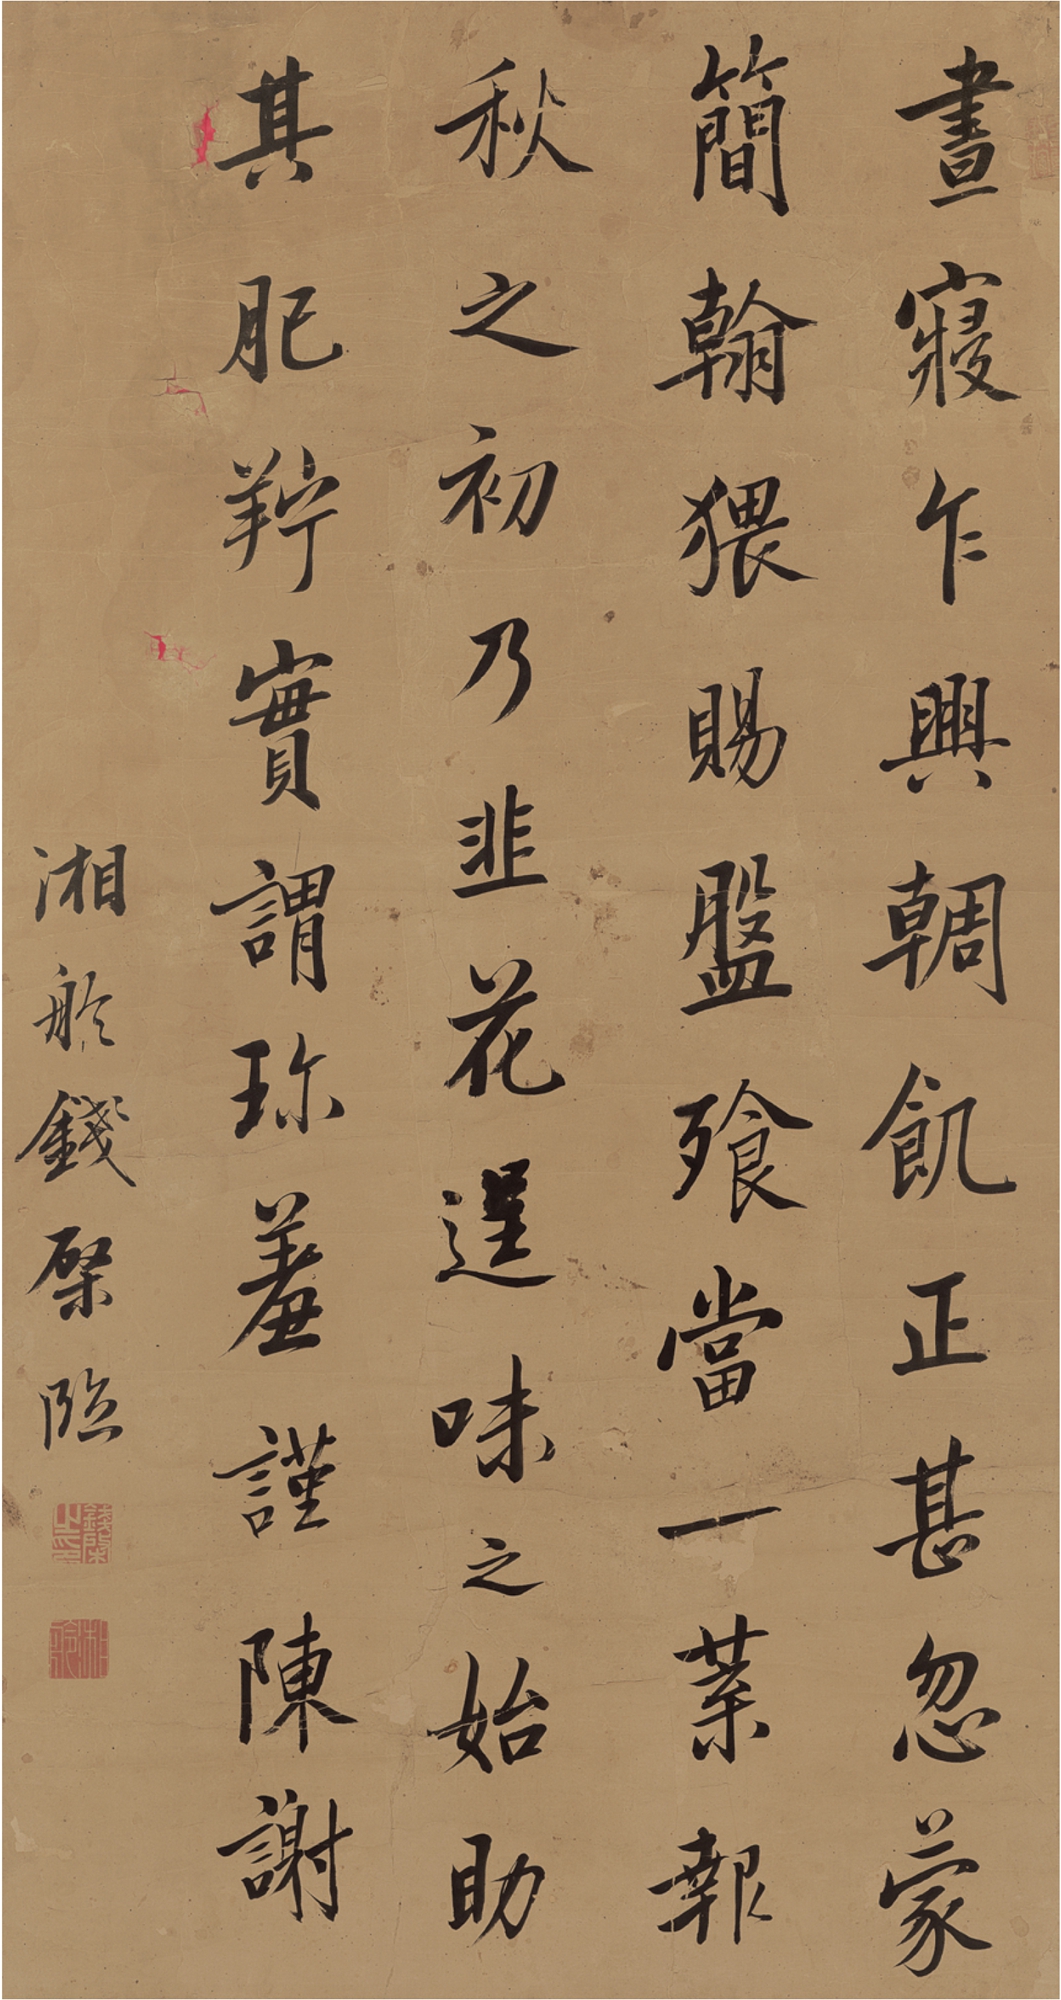 晝寢乍興輖飢正甚忽蒙
簡翰猥賜盤飧當一葉報
秋之初乃韭花逞味之始助
其肥羜實謂珍羞謹陳謝
湘舲錢棨臨
錢棨之印
湘舲